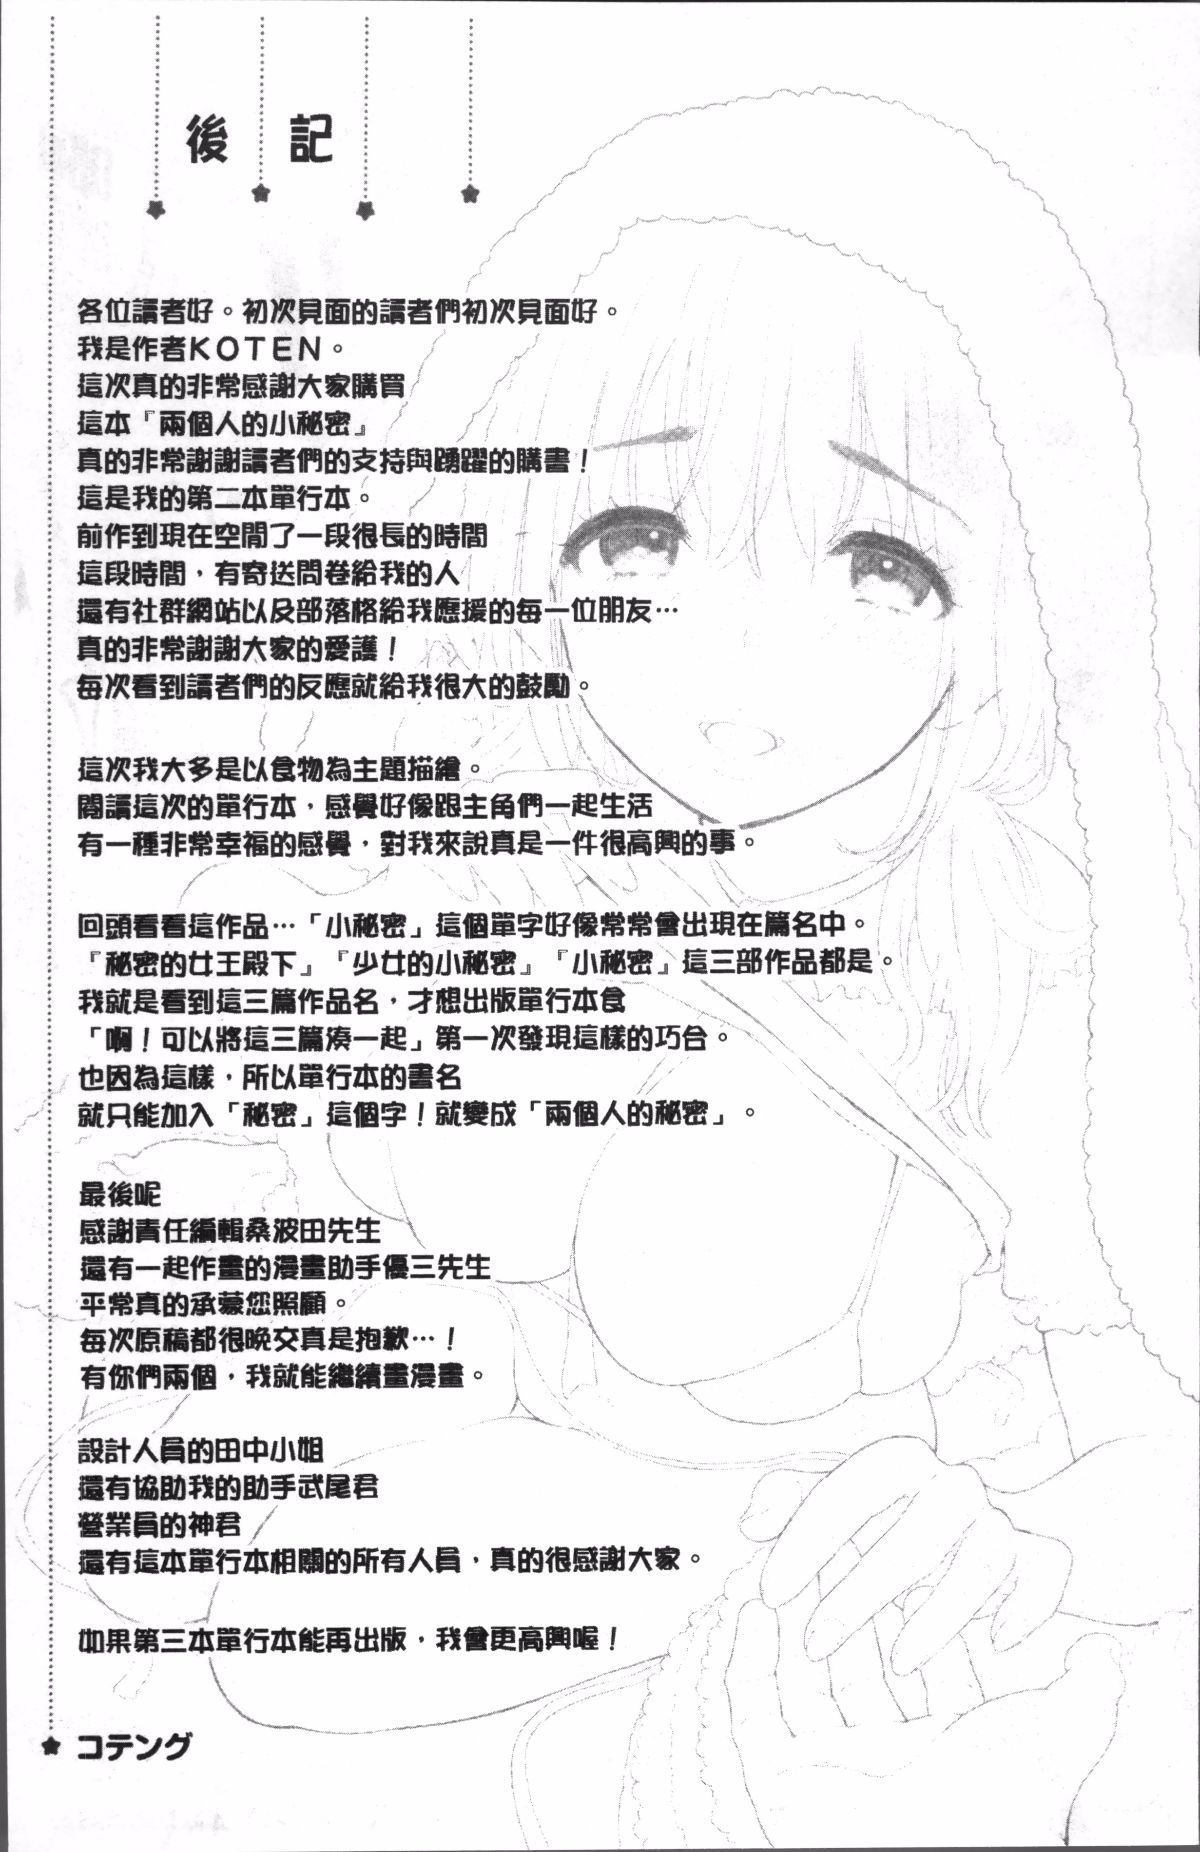 後記
各位讀者好。初次見面的讀者們初次見面好。
我是作者KOTEN。
這次真的非常感謝大家購買
這本『兩個人的小秘密』
真的非常謝謝讀者們的支持與踴躍的購書！
這是我的第二本單行本。
前作到現在空閒了一段很長的時間
這段時間，有寄送問卷給我的人
還有社群網站以及部落格給我應援的每一位朋友…
真的非常謝謝大家的愛護！
每次看到讀者們的反應就給我很大的鼓勵。
這次我大多是以食物為主題描繪。
閱讀這次的單行本，感覺好像跟主角們一起生活
有一種非常幸福的感覺，對我來說真是一件很高興的事。
回頭看看這作品…「小秘密」這個單字好像常常會出現在篇名中。
『秘密的女王殿下』『少女的小秘密』『小秘密』這三部作品都是。
我就是看到這三篇作品名，才想出版單行本食
「啊！可以將這三篇湊一起」第一次發現這樣的巧合。
也因為這樣，所以單行本的書名
就只能加入「秘密」這個字！就變成「兩個人的秘密」。
最後呢
感謝責任編輯桑波田先生
還有一起作畫的漫畫助手優三先生
平常真的承蒙您照顧。
每次原稿都很晚交真是抱歉…！
有你們兩個，我就能繼續畫漫畫。
設計人員的田中小姐
還有協助我的助手武尾君
營業員的神君
還有這本單行本相關的所有人員，真的很感謝大家。
如果第三本單行本能再出版，我會更高興喔！
コテング